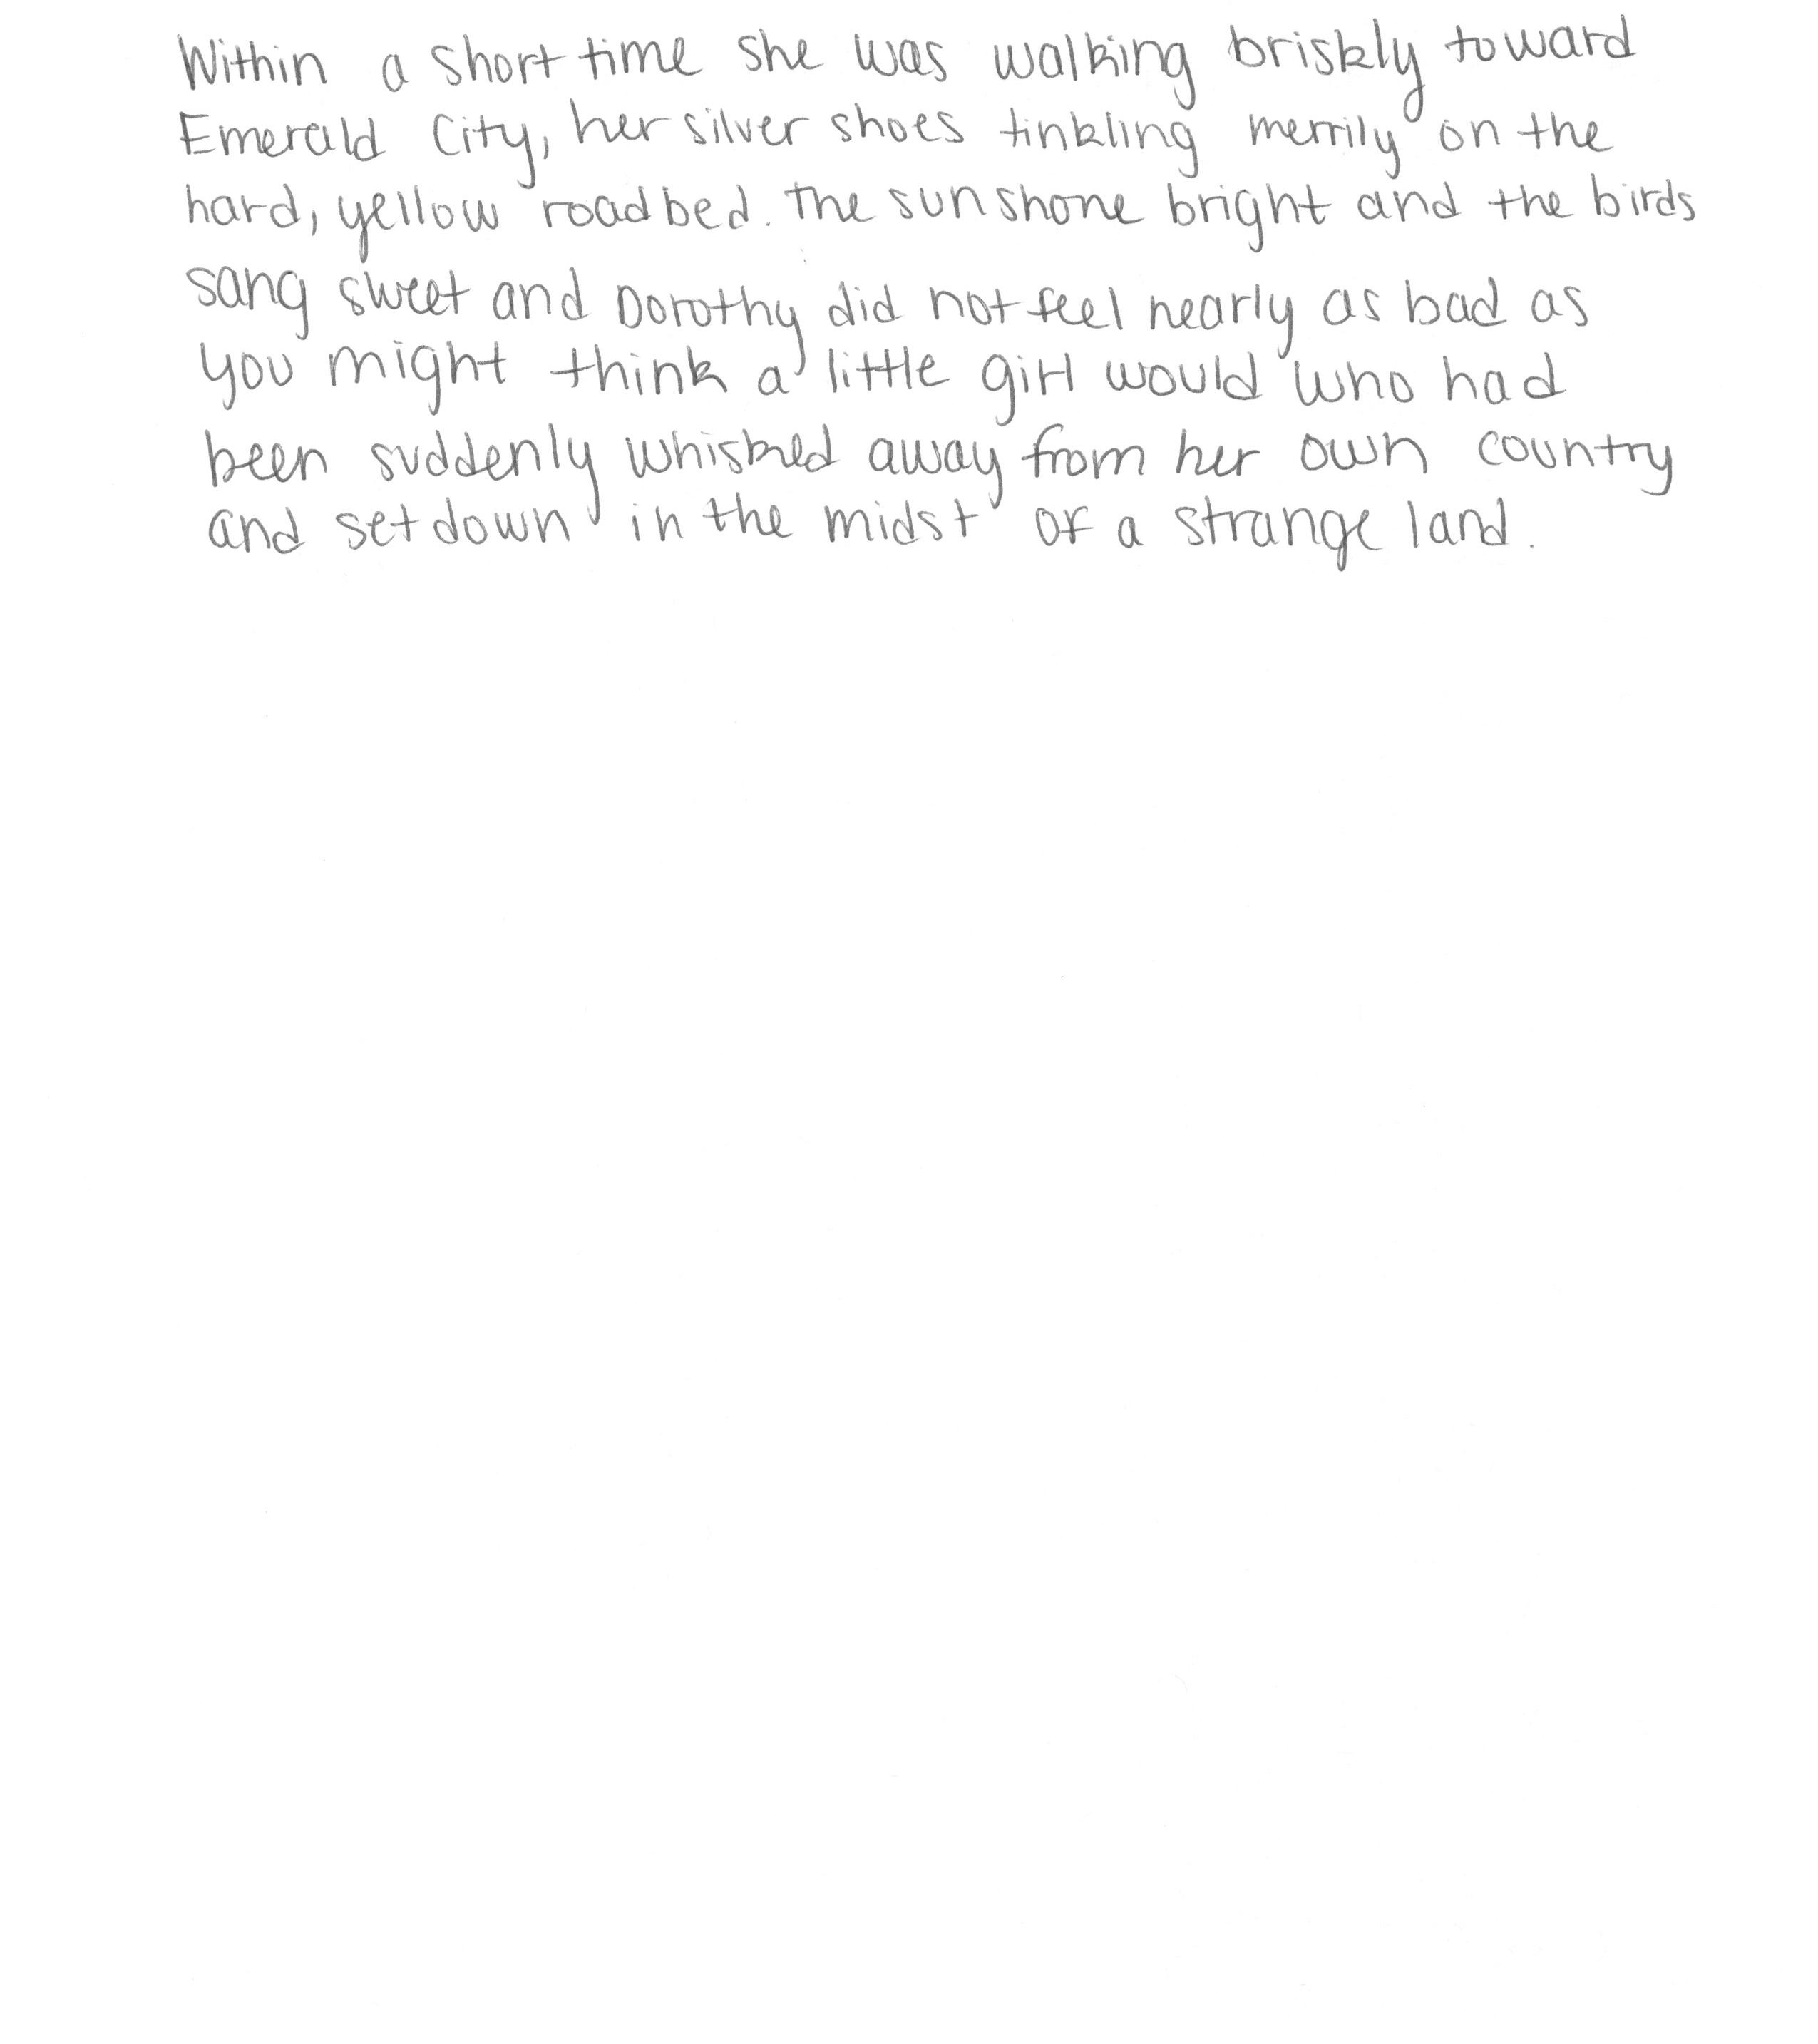 Within a short time she was walking briskly toward
Emerald City, her silver shoes tinkling merrily on the
hard, yellow roadbed. The sun shone bright and the birds
sang sweet and Dorothy did not feel nearly as bad as
you might think a little girl would who had
been suddenly whisked away from her own country
and set down in the midst of a strange land.